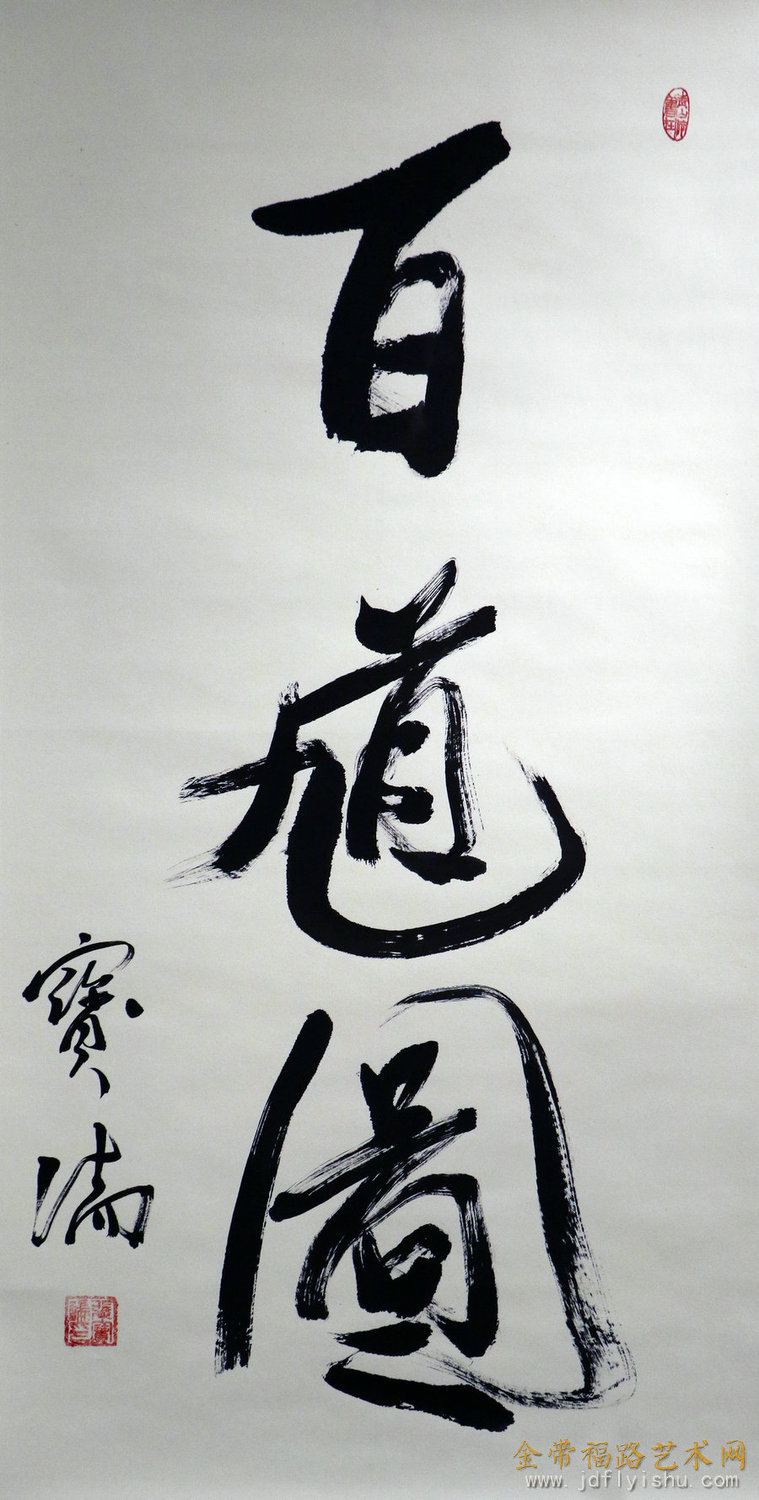 百馗圖
寶瑞
金带福路艺术网
www.jdflyishu.com